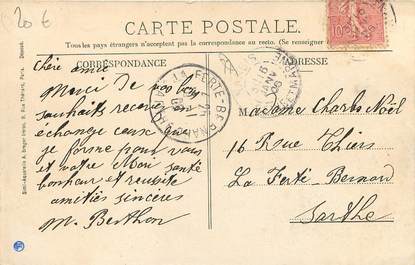 20 €
CARTE POSTALE.
Tous les pays étrangers n'acceptent pas la correspondance au recto. (Se renseigner
CORRESPONDANCE
ADRESSE
Chère amie
Merci de vos bons
souhaits recevez en
échange ceux que
je forme pour vous
et votre Mari santé
bonheur et réussite
amitiés sincères
M. Berthon
Madame Charles Noël
16 Rue Thiers
La Ferté-Bernard
Sarthe
LA FERTÉ-BERNARD
Berger frères, 9, Rue Thénard, Paris.